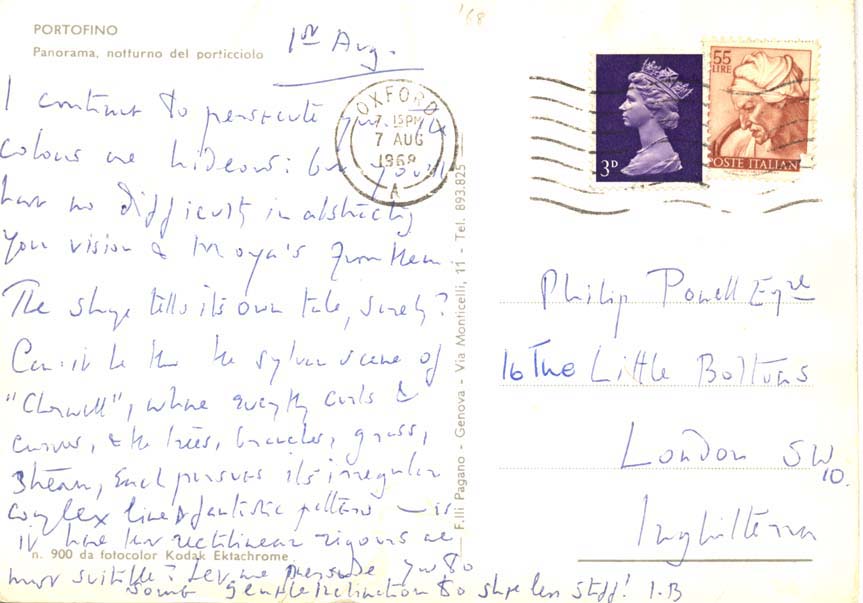 '68
PORTOFINO
Panorama, notturno del porticciolo
1st Aug.
I continue to persecute you. The
colours are hideous: but you'll
have no difficulty in abstracting
your vision & Moya's from them.
The shape tells its own tale, surely?
Can it be that the sylvan scene of
"Cherwell", where everything curls &
curves, & the trees, branches, grass,
stream, each pursues its irregular
complex line & fantastic pattern — is
it here that rectilinear rigours are
most suitable? Let me persuade you to
some gentle inclination to shape less stiff! I.B
n. 900 da fotocolor Kodak Ektachrome
F.lli Pagano - Genova - Via Monticelli, 11 - Tel. 893.825
OXFORD
7.15PM
7 AUG
1968
A
3D
55
LIRE
POSTE ITALIANE
Philip Powell Esqre
16 The Little Boltons
London SW
10.
Inghilterra